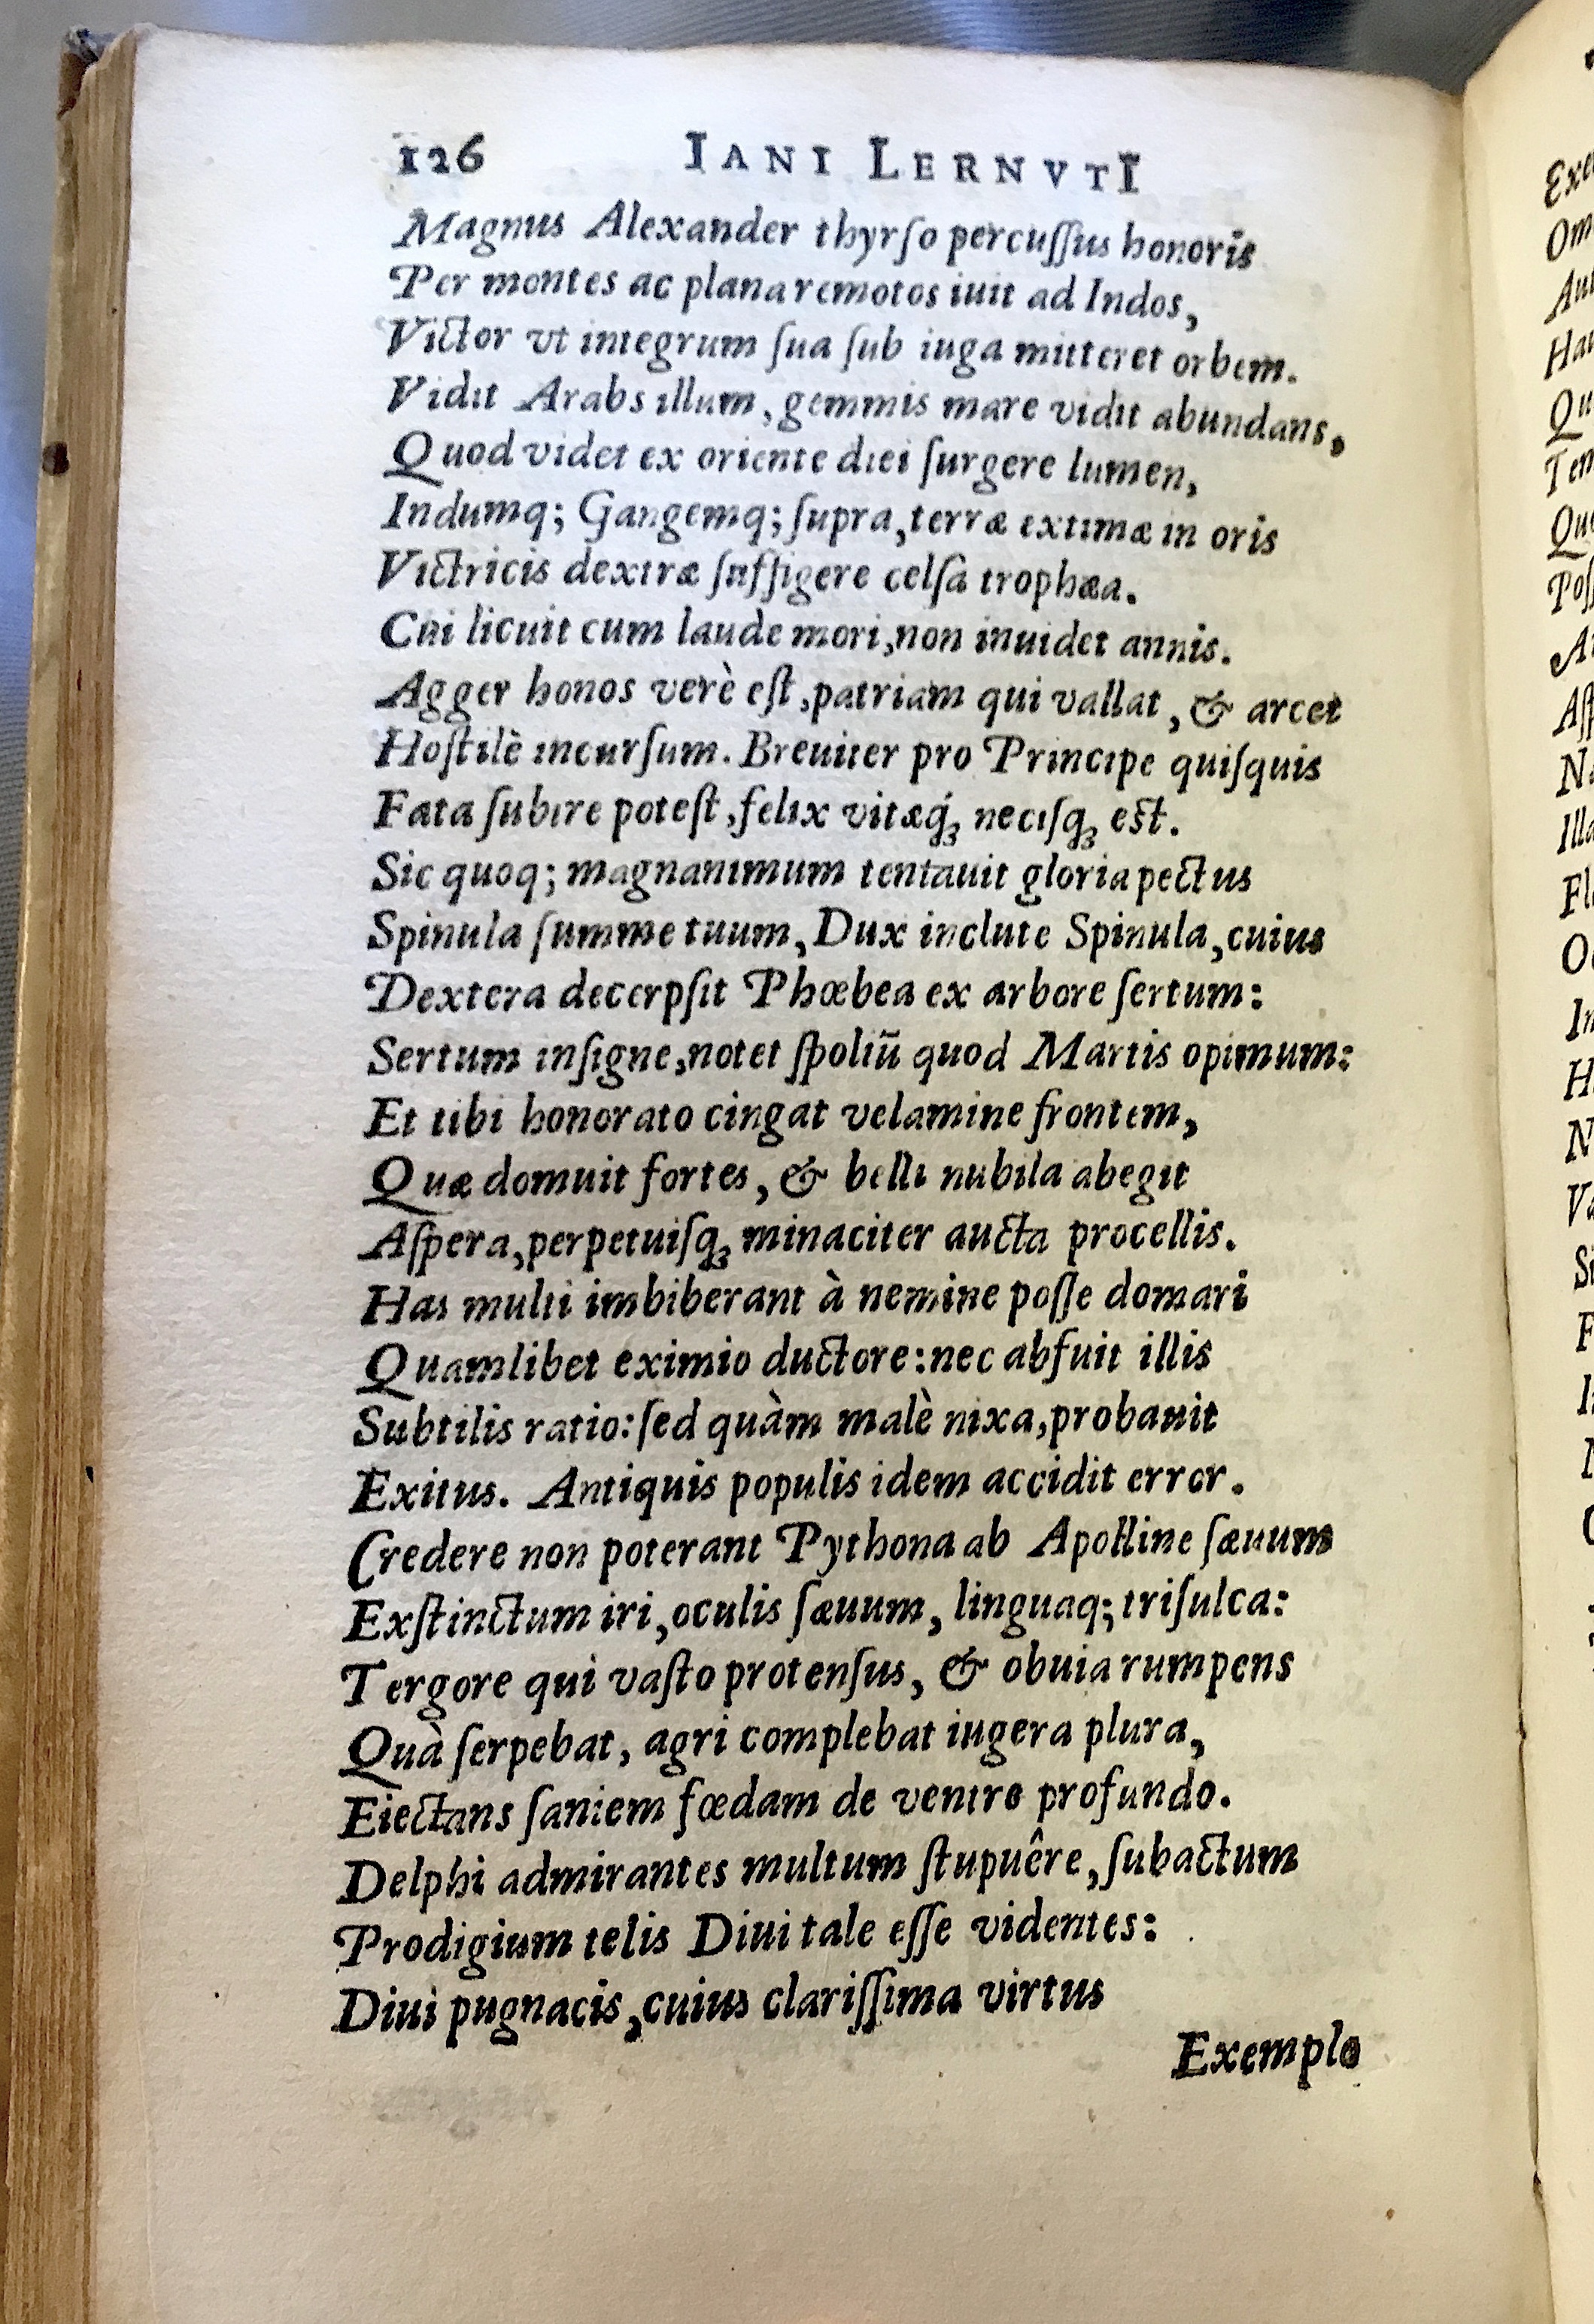 126 IANI LERNVTI
Magnus Alexander thyrſo percuſſus honoris
Per montes ac plana remotos iuit ad Indos,
Victor vt integrum ſua ſub iuga mitteret orbem.
Vidit Arabs illum, gemmis mare vidit abundans,
Quod videt ex oriente diei ſurgere lumen,
Indumq; Gangemq; ſupra, terræ extimæ in oris
Victricis dextræ ſuffigere celſa trophæa.
Cui licuit cum laude mori, non inuidet annis.
Agger honos verè eſt, patriam qui vallat, & arcet
Hoſtilè incurſum. Breuiter pro Principe quiſquis
Fata ſubire poteſt, felix vitæq́ꝫ neciſqꝫ eſt.
Sic quoq; magnanimum tentauit gloria pectus
Spinula ſumme tuum, Dux inclute Spinula, cuius
Dextera decerpſit Phœbea ex arbore ſertum:
Sertum inſigne, notet ſpoliũ quod Martis opimum:
Et tibi honorato cingat velamine frontem,
Quæ domuit fortes, & belli nubila abegit
Aſpera, perpetuiſqꝫ minaciter aucta procellis.
Has multi imbiberant à nemine poſſe domari
Quamlibet eximio ductore: nec abfuit illis
Subtilis ratio: ſed quàm malè nixa, probauit
Exitus. Antiquis populis idem accidit error.
Credere non poterant Pythona ab Apolline ſæuum
Exſtinctum iri, oculis ſæuum, linguaq; triſulca:
Tergore qui vaſto protenſus, & obuia rumpens
Quà ſerpebat, agri complebat iugera plura,
Eiectans ſaniem fœdam de ventre profundo.
Delphi admirantes multum ſtupuêre, ſubactum
Prodigium telis Diui tale eſſe videntes:
Diui pugnacis, cuius clariſſima virtus
Exemplo